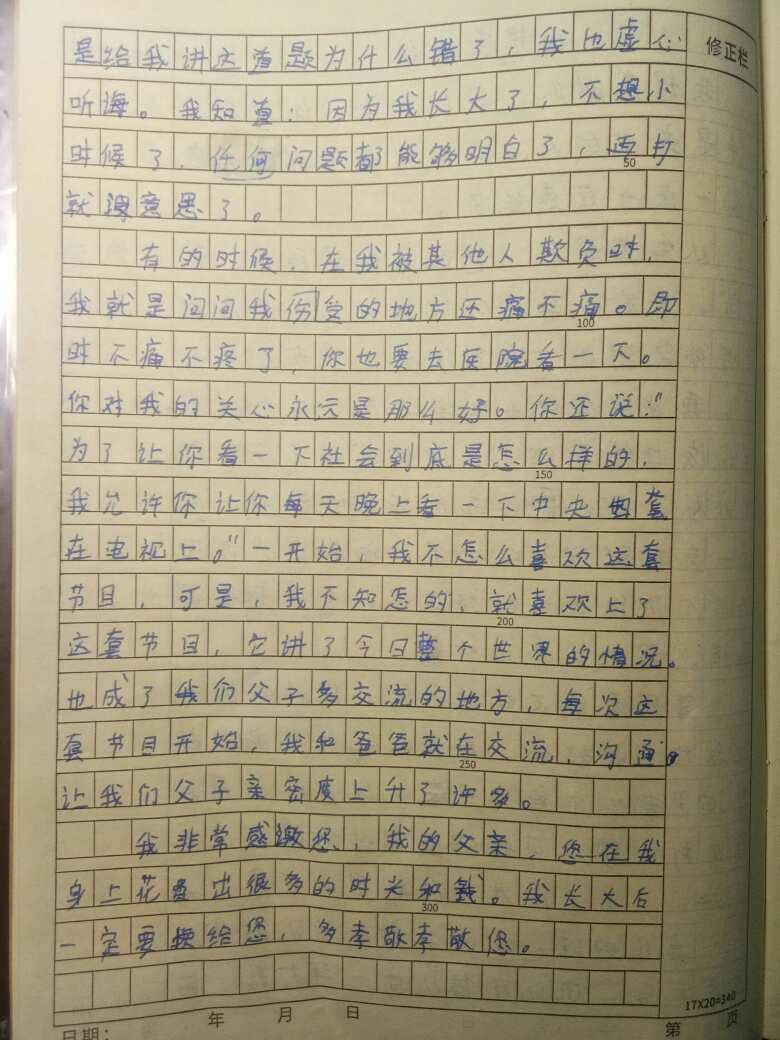 是给我讲这道题为什么错了，我也虚心
修正栏
听诲。我知道：因为我长大了，不想小
时候了，任何问题都能够明白了，再打
50
就没意思了。
有的时候，在我被其他人欺负时，
我就是问问我伤受的地方还痛不痛。即
100
时不痛不疼了，你也要去医院看一下。
你对我的关心永远是那么好。你还说："
为了让你看一下社会到底是怎么样的，
150
我允许你让你每天晚上看一下中央四套
在电视上。"一开始，我不怎么喜欢这套
节目，可是，我不知怎的，就喜欢上了
200
这套节目，它讲了今日整个世界的情况。
也成了我们父子多交流的地方，每次这
套节目开始，我和爸爸就在交流，沟通。
250
让我们父子亲密度上升了许多。
我非常感谢您，我的父亲，您在我
身上花费出很多的时长和钱。我长大后
300
一定要换给您，多孝敬孝敬您。
17X20=340
日期： 年 月 日 第 页